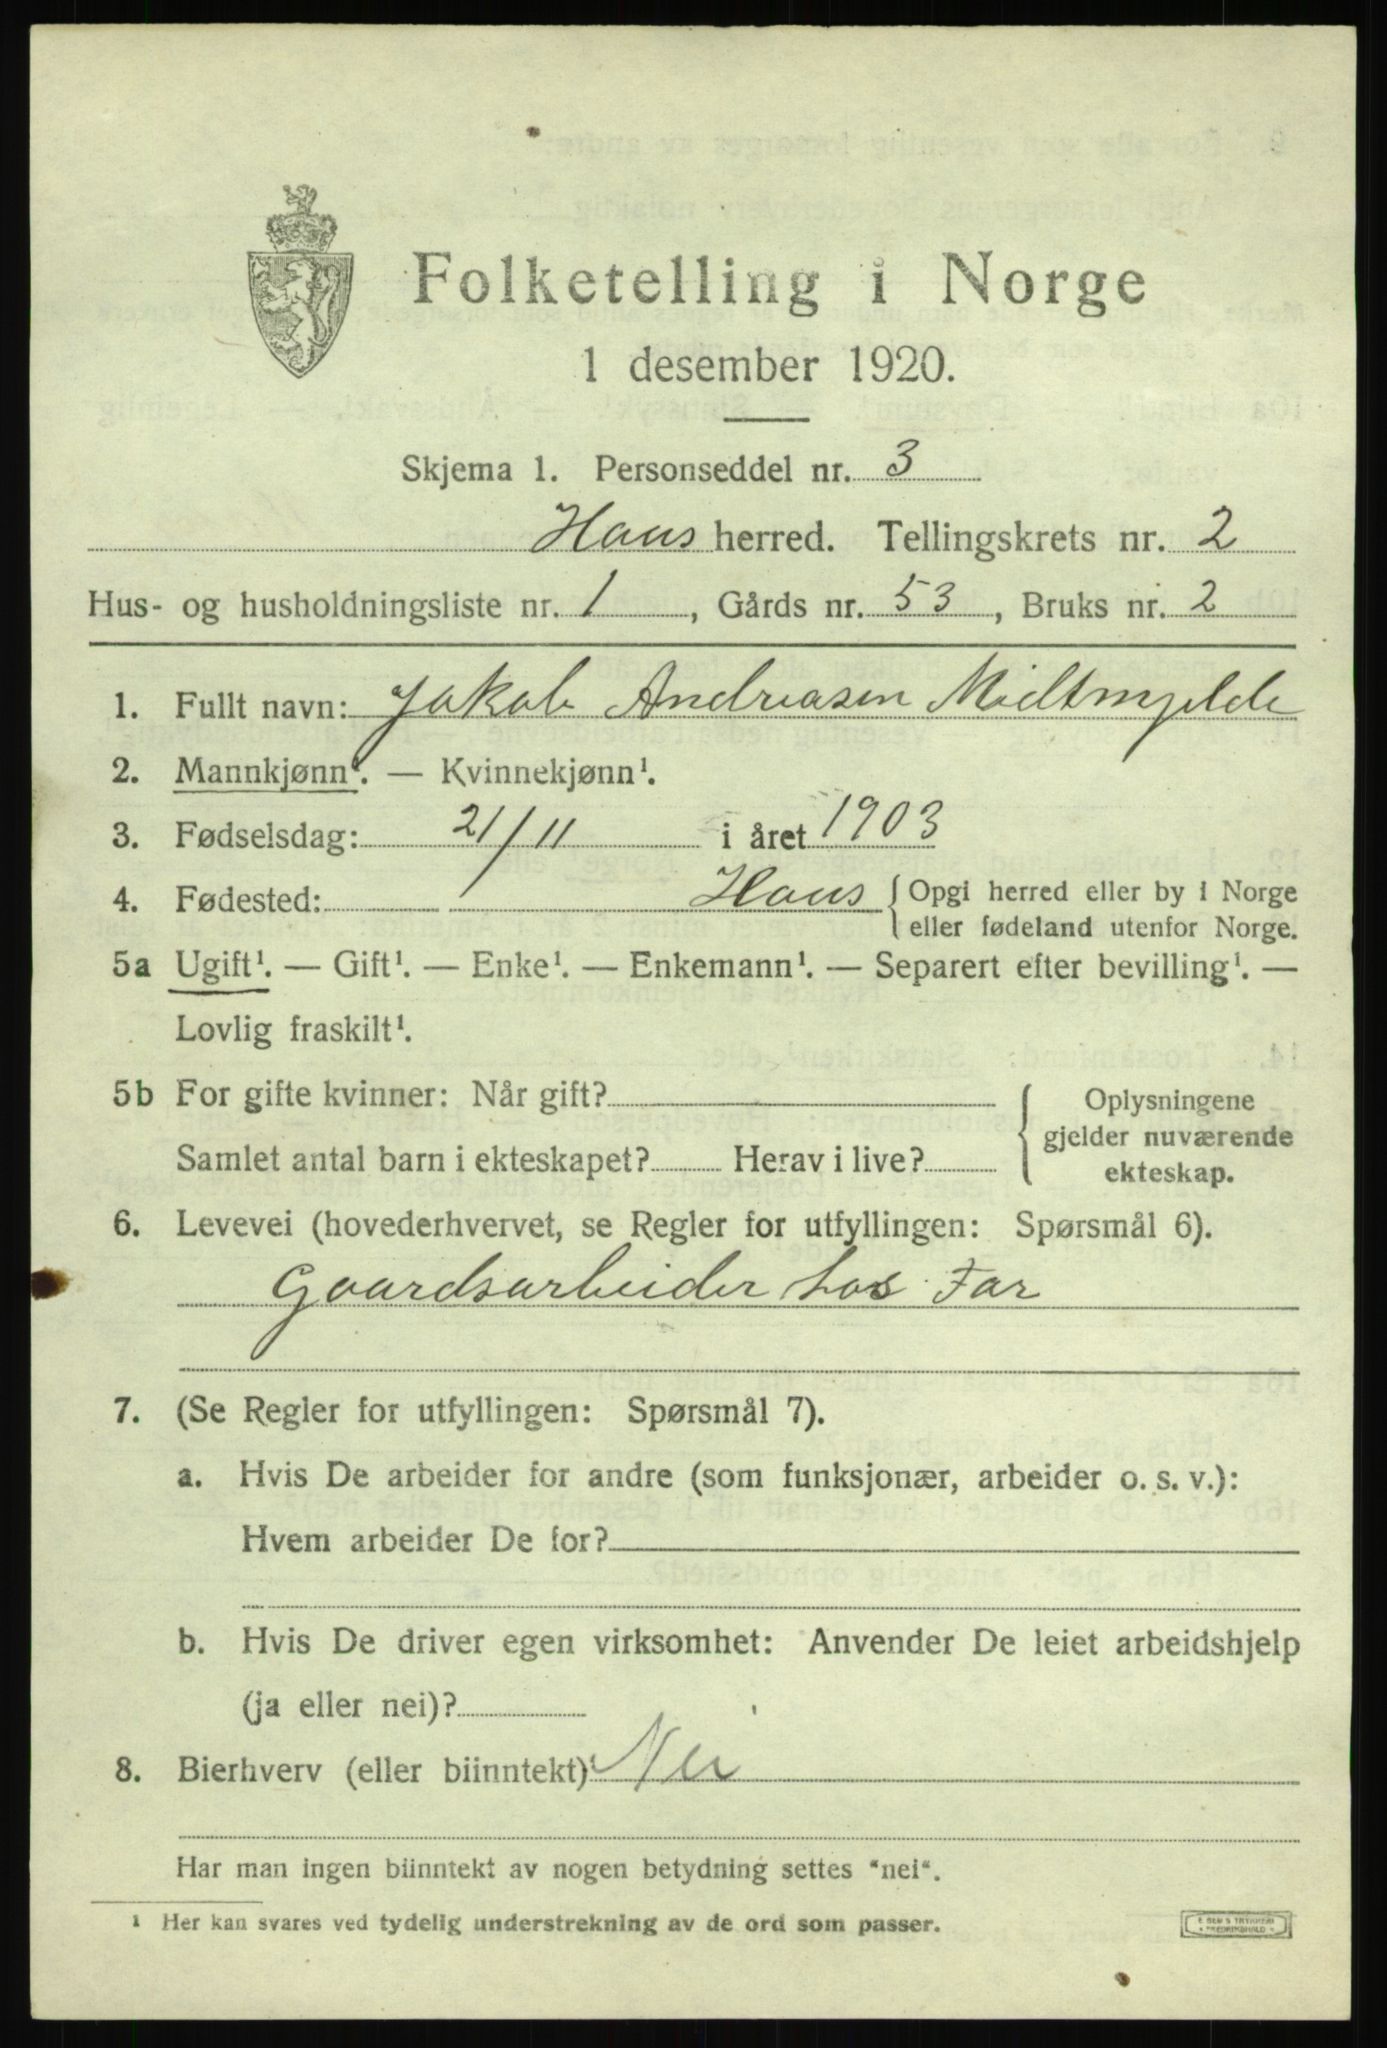 Folketelling i Norge
1 desember 1920.
Skjema 1. Personseddel nr. 3
Haus herred. Tellingskrets nr. 2
Hus- og husholdningsliste nr. 1, Gårds nr. 53, Bruks nr. 2
1. Fullt navn: Jakob Andreasen Midtmjelde
2. Mannkjønn¹. — Kvinnekjønn¹.
3. Fødselsdag: 21/11 i året 1903
4. Fødested: Haus { Opgi herred eller by i Norge
eller fødeland utenfor Norge.
5a Ugift¹. — Gift¹. — Enke¹. — Enkemann¹. — Separert efter bevilling¹. —
Lovlig fraskilt¹.
5b For gifte kvinner: Når gift?
Samlet antal barn i ekteskapet? Herav i live?
Oplysningene
gjelder nuværende
ekteskap.
6. Levevei (hovederhvervet, se Regler for utfyllingen: Spørsmål 6).
Gaardsarbeider hos Far
7. (Se Regler for utfyllingen: Spørsmål 7).
a. Hvis De arbeider for andre (som funksjonær, arbeider o. s. v.):
Hvem arbeider De for?
b. Hvis De driver egen virksomhet: Anvender De leiet arbeidshjelp
(ja eller nei)?
8. Bierhverv (eller biinntekt) Nei
Har man ingen biinntekt av nogen betydning settes "nei".
¹ Her kan svares ved tydelig understrekning av de ord som passer.